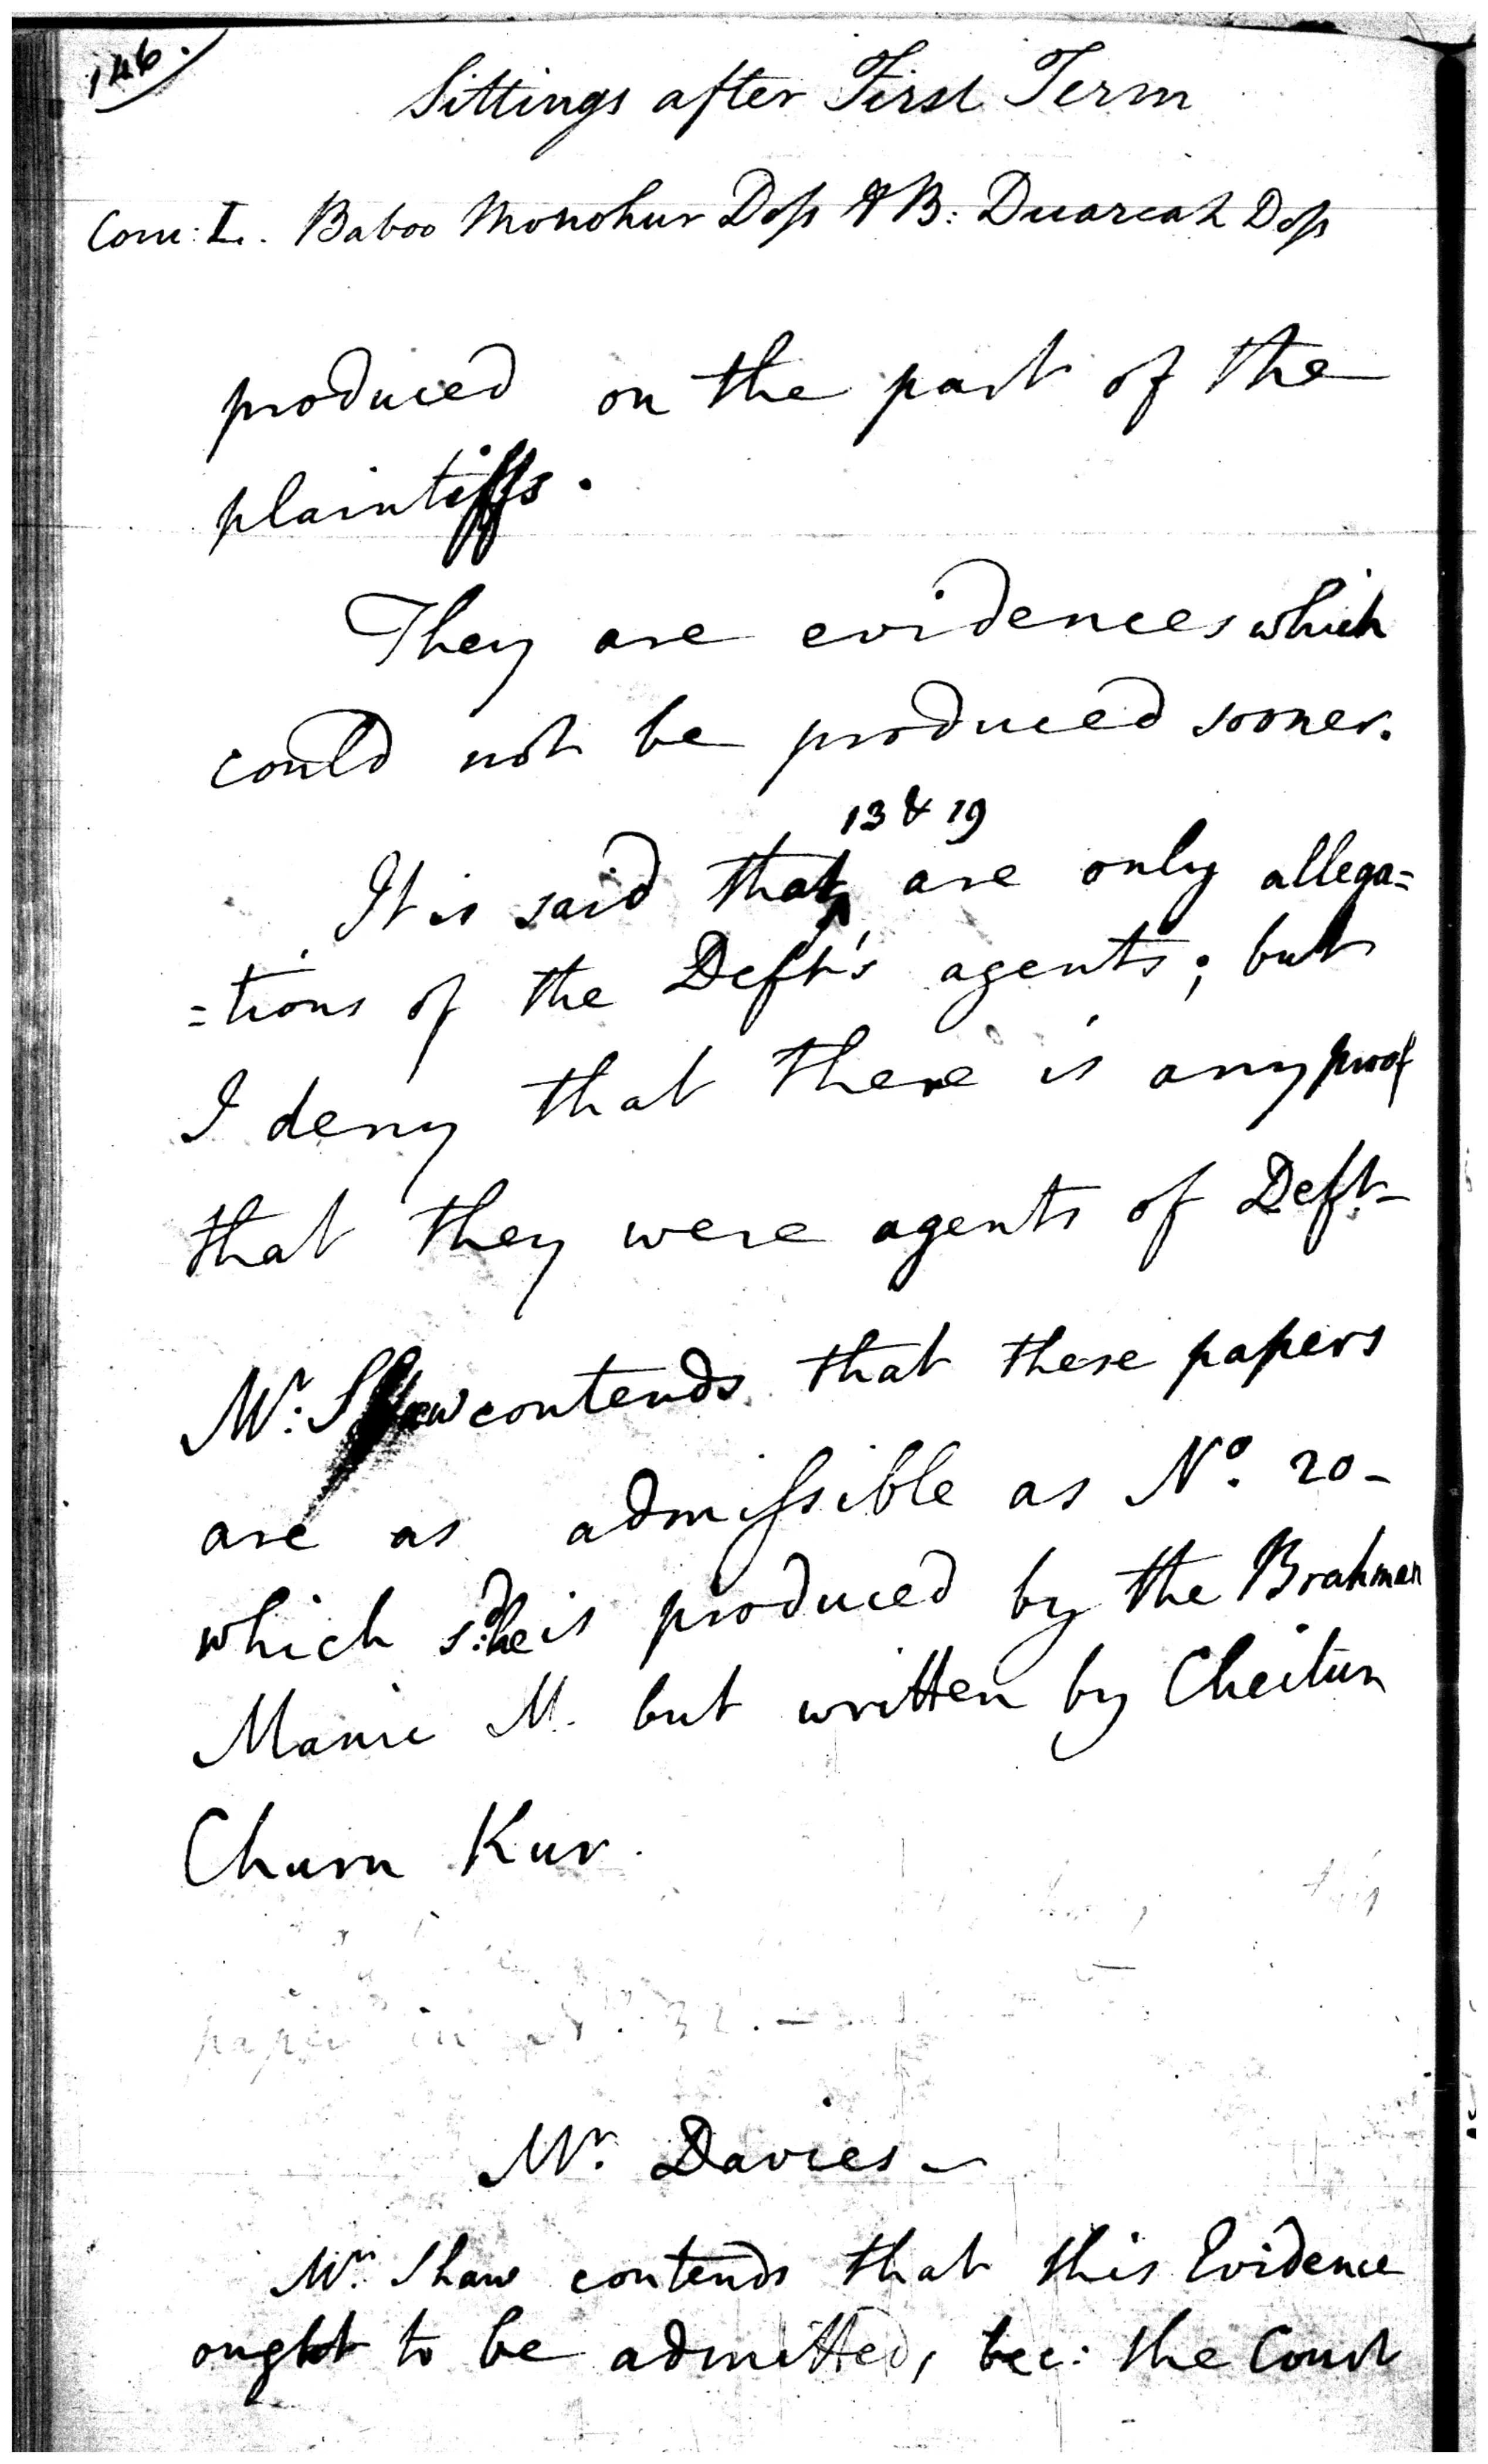 146.
Sittings after First Term
Com: L. Baboo Monohur Doss & B: Duarcah Doss
produced on the part of the
plaintiffs.
They are evidences which
could not be produced sooner.
13 & 19
It is said that are only allega=
=tions of the Deft's agents; but
I deny that there is any proof
that they were agents of Deft-
Mr. Shaw contends that these papers
are as admissible as No. 20-
which is produced by the Brahman
M. but written by Cheitun
Churn Kur.
paper in
Mr. Davies-
Mr. Shaw contends that this Evidence
ought to be admitted, bec: the Court